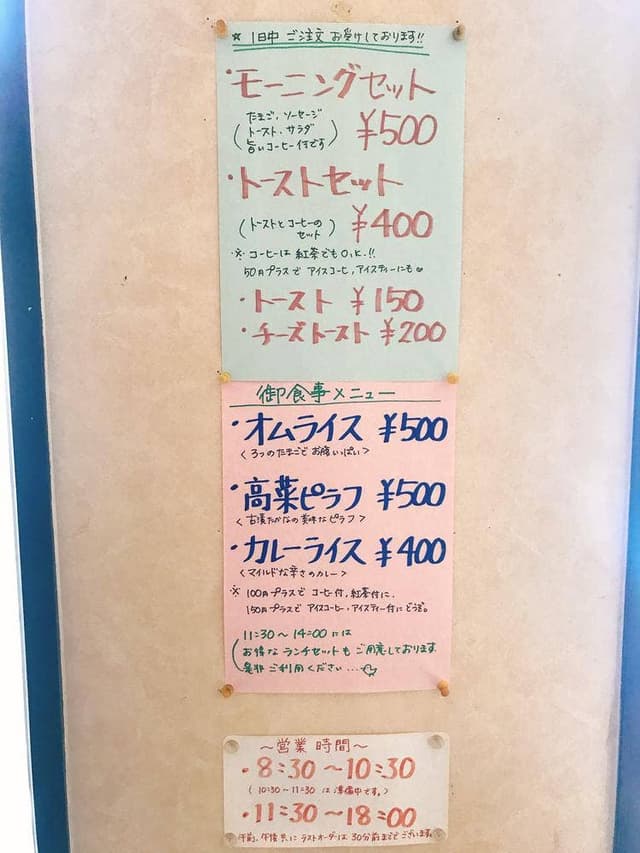 ☆ 1日中 ご注文 お受けしております!!
・モーニングセット
(たまご、ソーセージ
トースト、サラダ
旨いコーヒー付です) ¥500
・トーストセット
(トーストとコーヒーの
セット) ¥400
※ コーヒーは 紅茶でも O.K.!!
50円プラスで アイスコーヒ、アイスティーにも♥
・トースト ¥150
・チーズトースト ¥200
御食事メニュー
・オムライス ¥500
<3つのたまごで お腹いっぱい>
・高菜ピラフ ¥500
<古漬たかなの美味なピラフ>
・カレーライス ¥400
<マイルドな辛さのカレー>
※ 100円プラスで コーヒー付、紅茶付に、
150円プラスで アイスコーヒー、アイスティー付にどうぞ。
11:30〜14:00には
お得な ランチセットも ご用意しております
是非 ご利用ください...
〜営業時間〜
・8:30〜10:30
(10:30〜11:30 は準備中です。)
・11:30〜18:00
午前、午後共に ラストオーダーは 30分前まででございます。